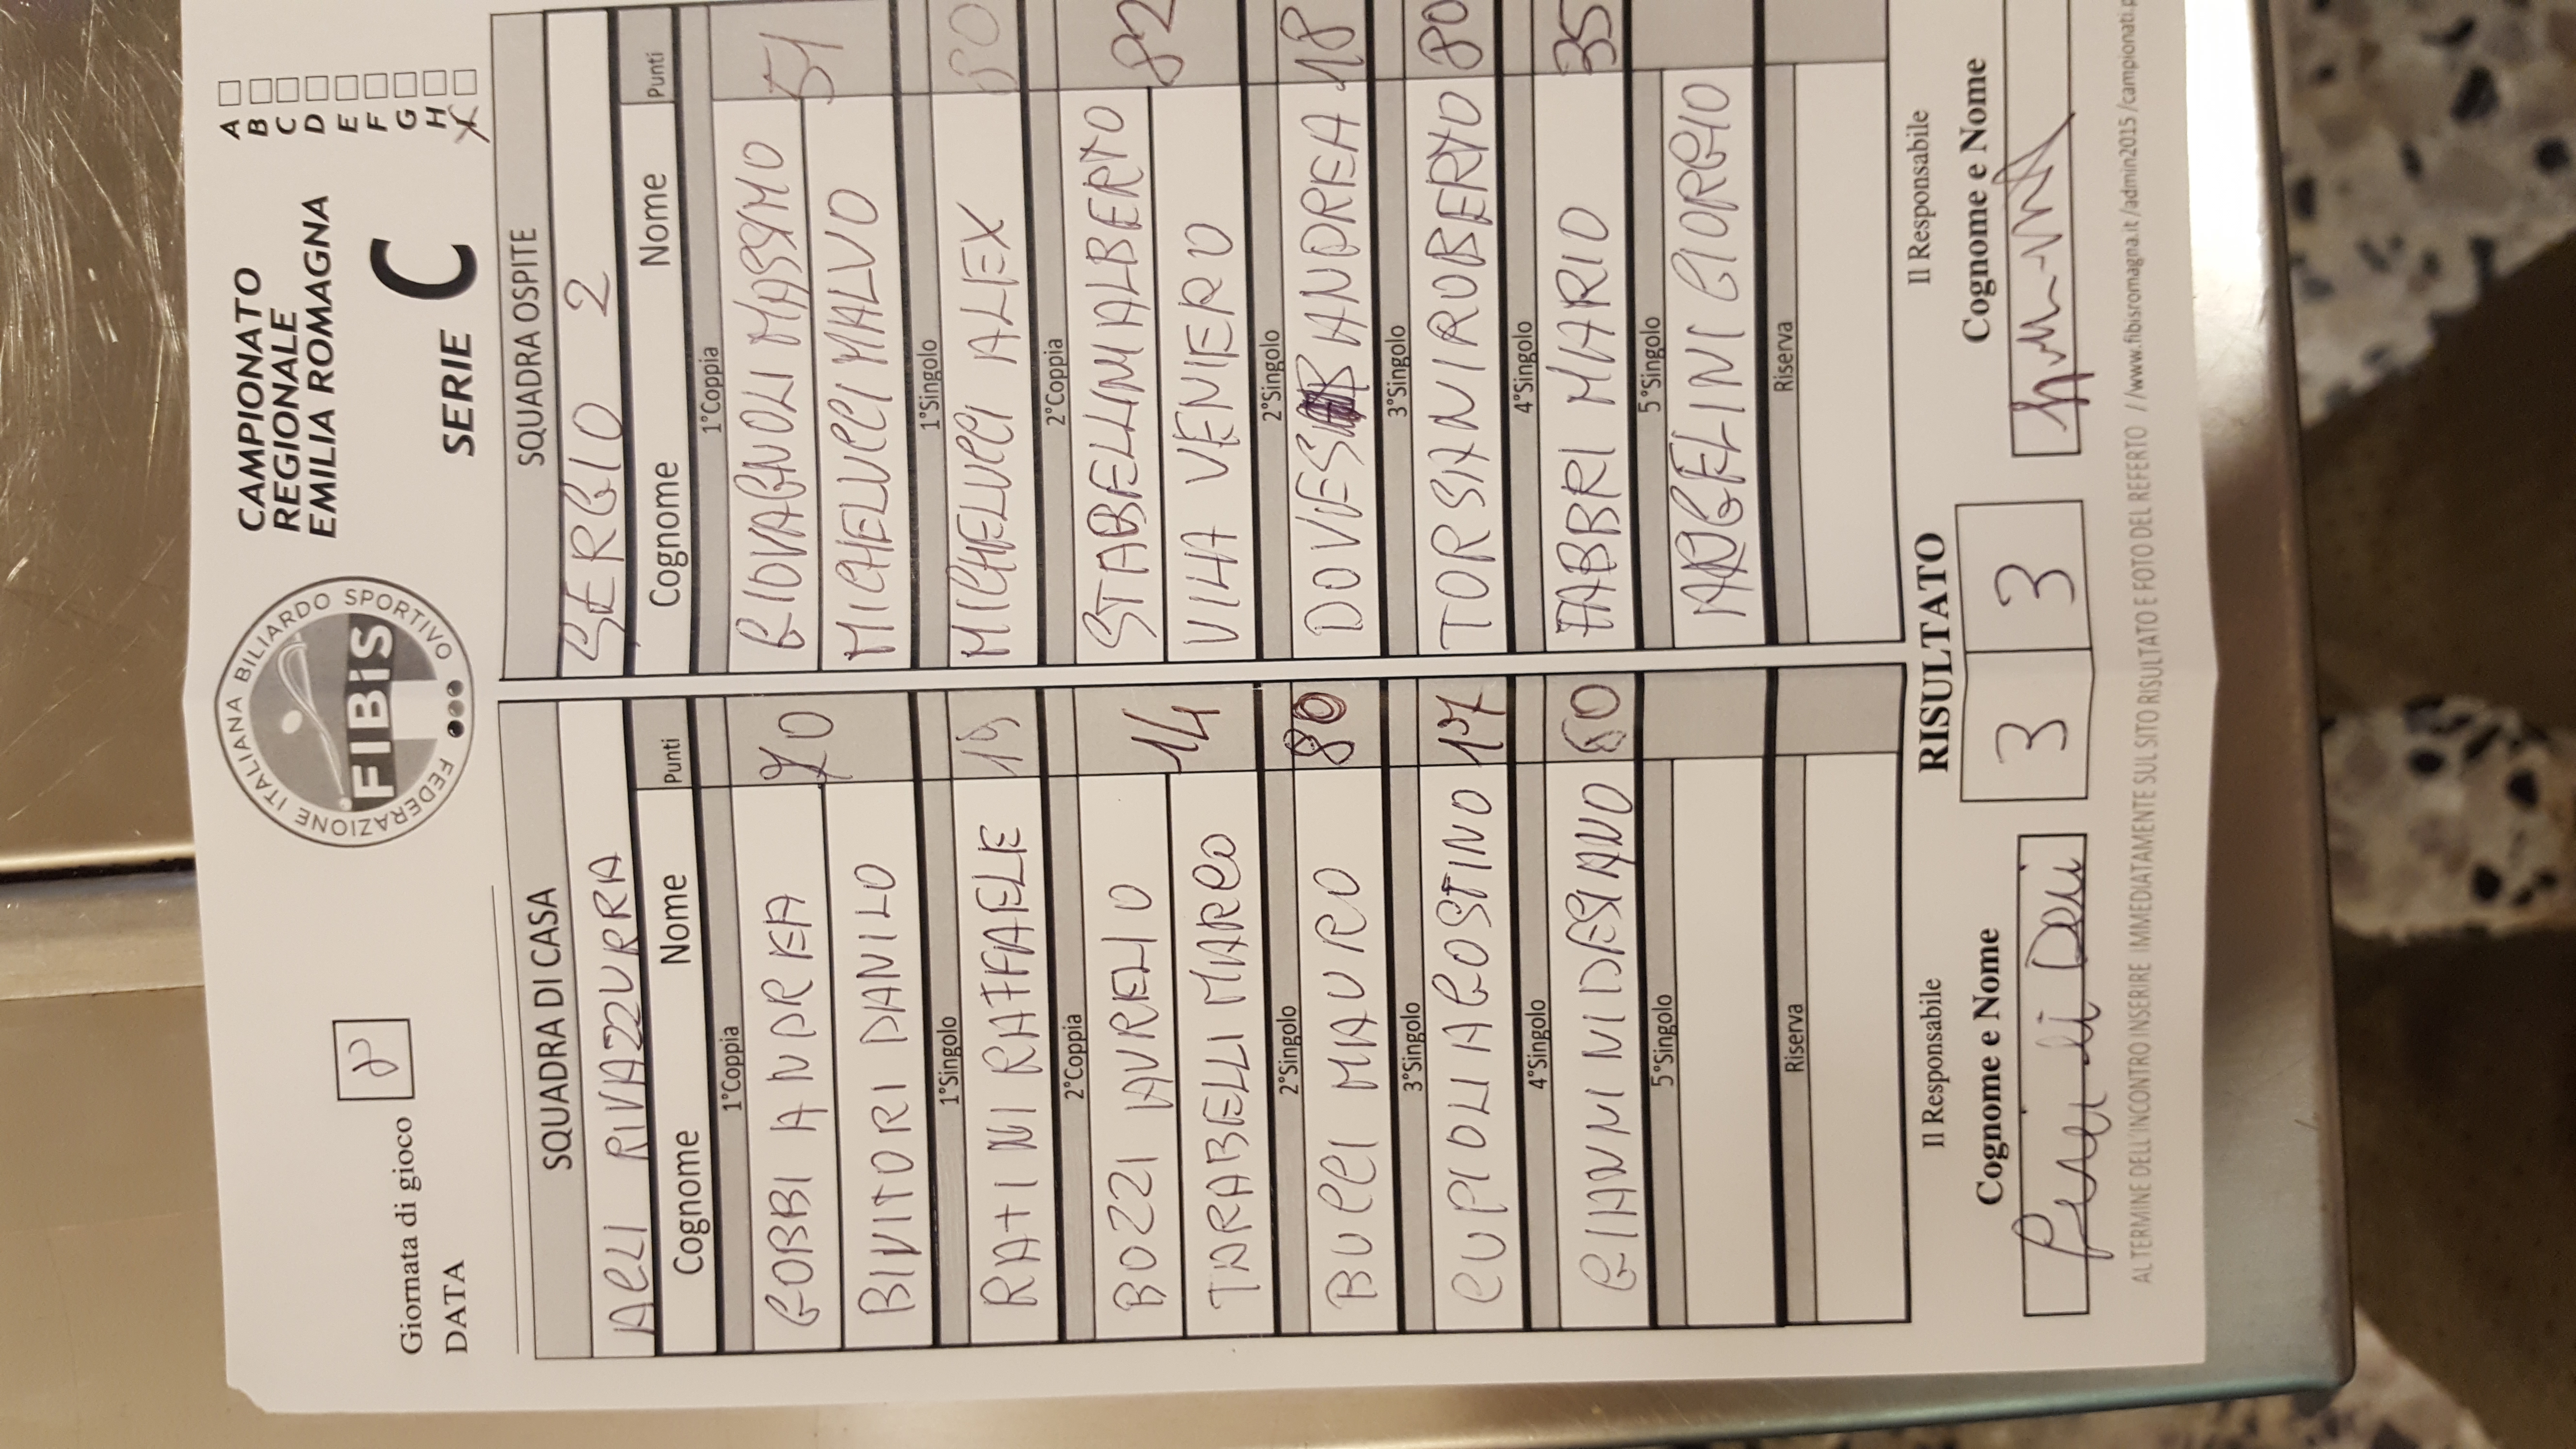 Giornata di gioco 8
DATA
FEDERAZIONE ITALIANA BILIARDO SPORTIVO
FIBiS
CAMPIONATO
REGIONALE
EMILIA ROMAGNA
SERIE C
A
B
C
D
E
F
G
H
SQUADRA DI CASA
ACLI RIVAZZURRA
Cognome Nome Punti
1°Coppia
GOBBI ANDREA 70
BIVITORI DANILO
1°Singolo
RATINI RAFFAELE 19
2°Coppia
BOZZI AURELIO 14
TARABELLI MARCO
2°Singolo
BUCCI MAURO 80
3°Singolo
CUPIOLI AGOSTINO 17
4°Singolo
GIANNINI DESIANO 60
5°Singolo
Riserva
SQUADRA OSPITE
SERGIO 2
Cognome Nome Punti
1°Coppia
GIOVAGNOLI MASSIMO 51
MICHELUCCI MALVO
1°Singolo
MICHELUCCI ALEX 80
2°Coppia
STABELLINI ALBERTO 82
VILLA VENIERO
2°Singolo
ANDREA 18
3°Singolo
TORSANI ROBERTO 80
4°Singolo
FABBRI MARIO 35
5°Singolo
ANGELINI GIORGIO
Riserva
Il Responsabile
Cognome e Nome
RISULTATO
3 3
Il Responsabile
Cognome e Nome
AL TERMINE DELL'INCONTRO INSERIRE IMMEDIATAMENTE SUL SITO RISULTATO E FOTO DEL REFERTO //www.fibisromagna.it/admin2015/campionati.p